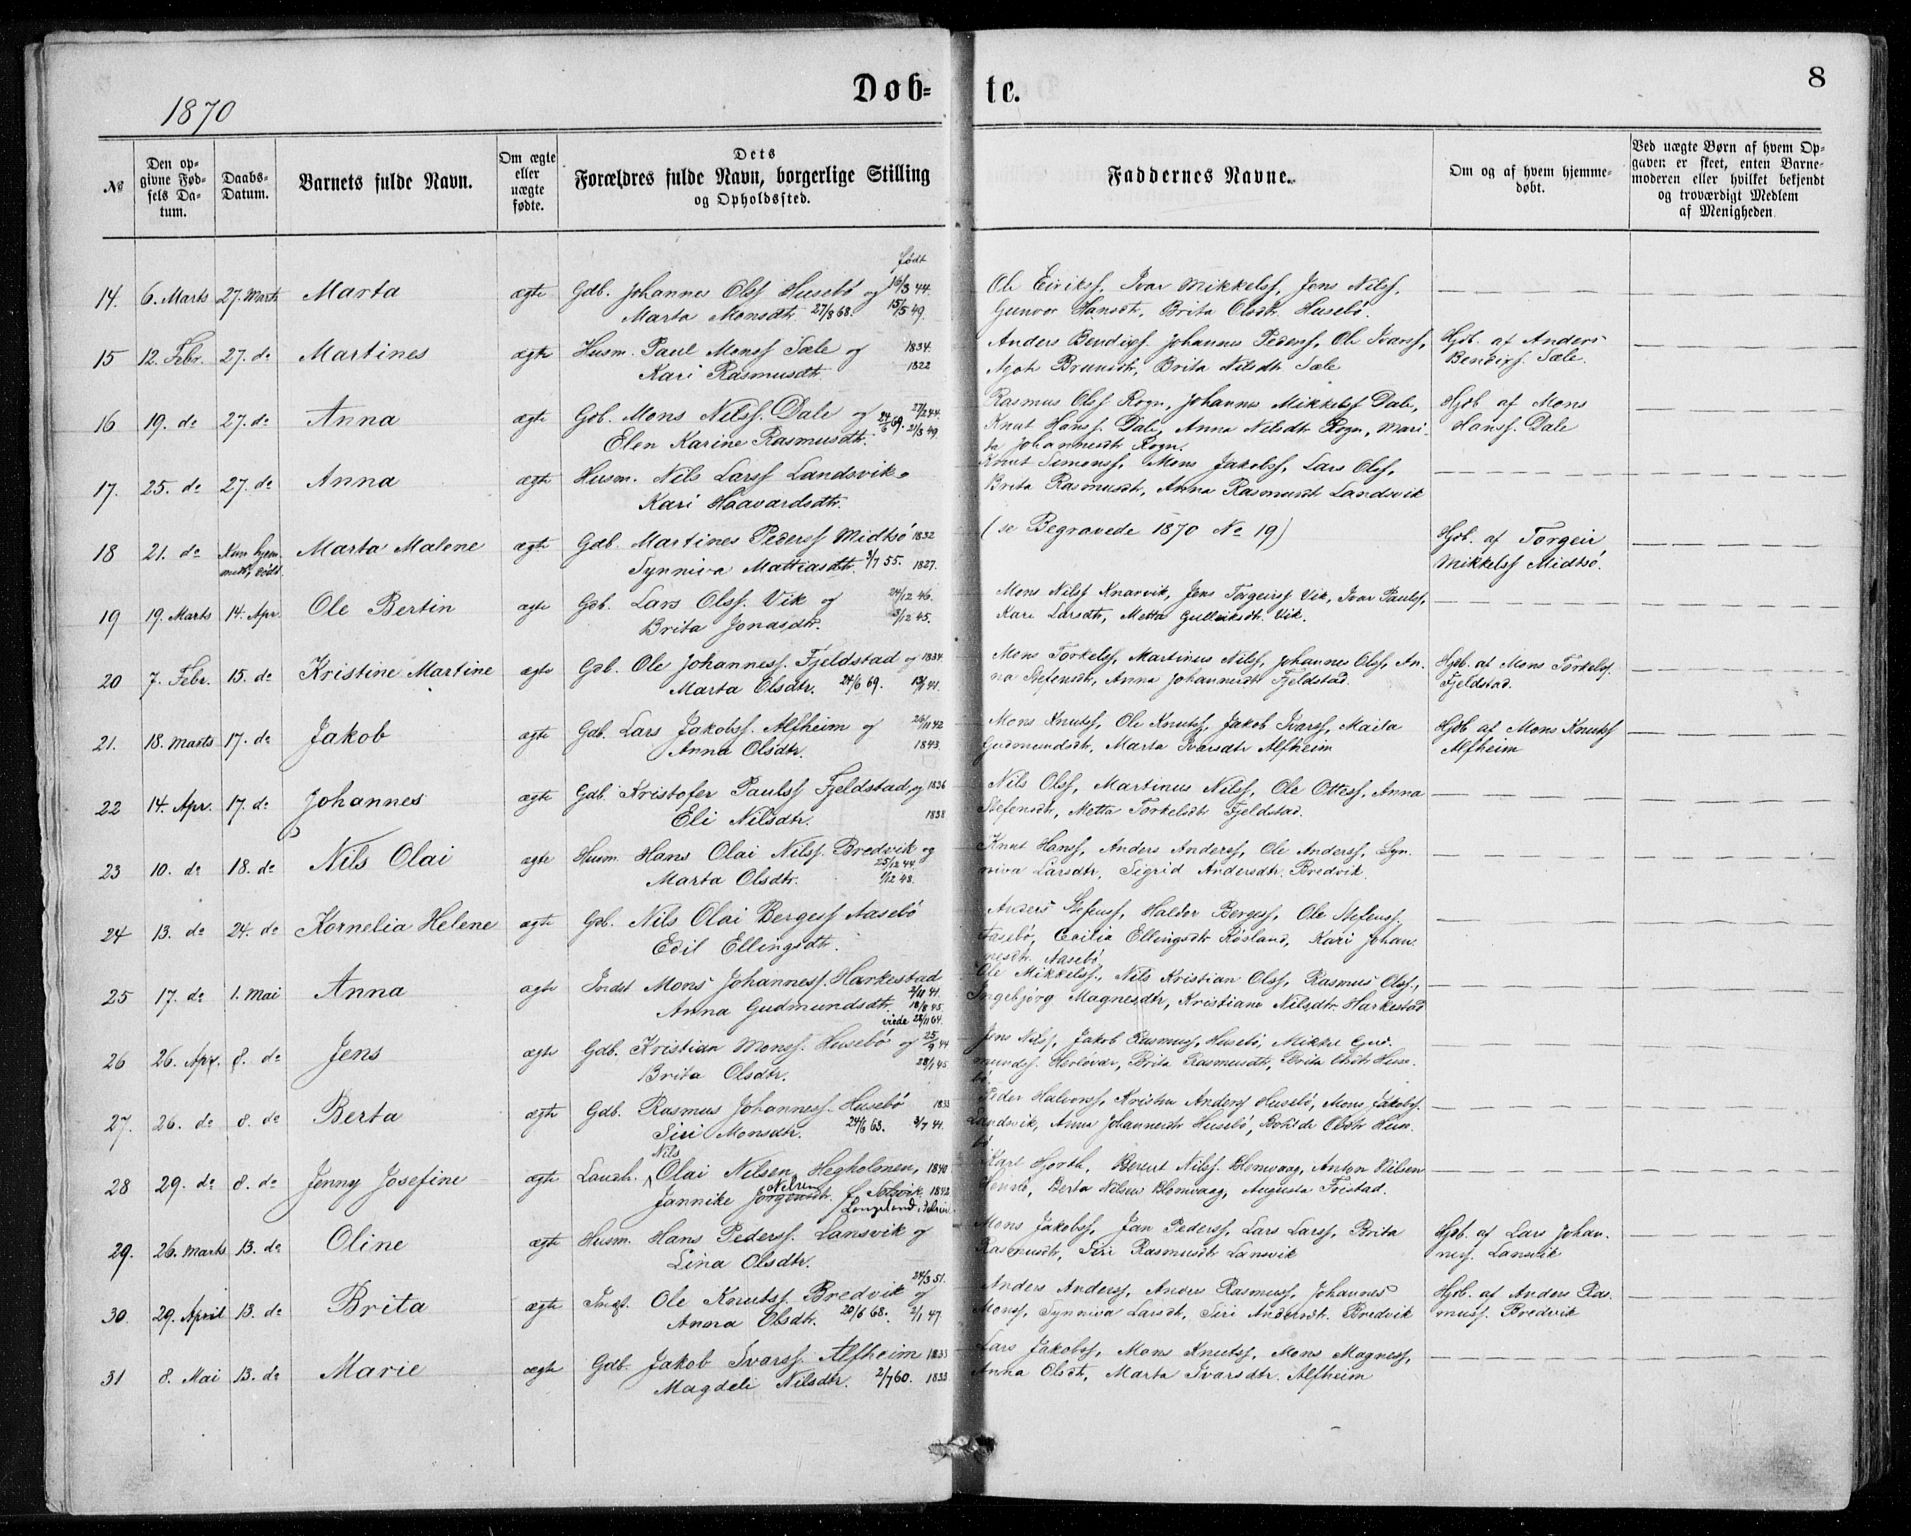 1870
Døb-
te.
8
№
Den op-
givne Fød-
sels Da-
tum.
Daabs-
Datum.
Barnets fulde Navn.
Om ægte
eller
uægte
fødte.
Dets
Forældres fulde Navn, borgerlige Stilling
og Opholdssted.
Faddernes Navne.
Om og af hvem hjemme-
døbt.
Ved uægte Børn af hvem Op-
gaven er skeet, enten Barne-
moderen eller hvilket bekjendt
og troværdigt Medlem
af Menigheden.
født
14. 6. Marts 27. Marts Marta ægte Gdb. Johannes Olss Husebø og 16/3 44.
Marta Monsdtr. 27/8 68. 15/5 49.
Ole Eirikss, Ivar Mikkelss, Jens Nilss,
Gunvor Hansdtr, Brita Olsdtr Husebø.
15 12. Febr. 27. do Martines ægte Husm. Paul Monss Sæle og 1834.
Kari Rasmusdtr. 1822
Anders Bendigss Johannes Pederss, Ole Ivarss,
Brita Nilsdtr Sæle
Hjdb. af Anders
Bendigs. Sæle.
16 19. do 27. do Anna ægte Gdb. Mons Nilss. Dale og 27/2 44.
Elen Karine Rasmusdtr. 21/3 49.
Rasmus Olss Rogn, Johannes Mikkelss Dale,
Knut Hanss. Dale, Anna Nilsdtr Rogn, Mari-
ta Johannesdtr Rogn.
Hjdb af Mons
Hanss. Dale
17. 25. do 27. do Anna ægte Husm. Nils Larss Landsvik
Kari Haavardsdtr.
Knut Simonss, Mons Jakobss, Lars Olss,
Brita Rasmusdtr, Anna Rasmusdt Landsvik
18 21. do Kun hjem-
medb, død Marta Malene ægte Gdb. Martines Pederss Midtsø 1832
Synniva Mattiasdtr. 3/7 55. 1827.
(se Begravede 1870 No 19)
Hjdb. af Torgeir
Mikkelss Midtsø.
19 19. Marts 14. Apr Ole Bertin ægte Gdb. Lars Olss. Vik og 24/12 46.
Brita Jonasdtr. 3/12 45.
Mons Nilss Knarvik, Jens Torgeirss Vik, Ivar Paulss,
Kari Larsdtr, Metta Gulleiksdtr. Vik.
20 7. Febr. 15. do Kristine Martine ægte Gdb. Ole Johanness. Fjeldstad og 1834.
Marta Olsdtr. 24/6 69.
Mons Torkelss, Martinus Nilss, Johannes Olss, An-
na Stefensdtr, Anna Johannesdtr Fjeldstad.
Hjdb. af Mons Torkelss.
Fjeldstad.
21. 18. Marts 17. do Jakob ægte Gdb. Lars Jakobss. Alfheim og 26/11 42
Anna Olsdtr. 1843.
Mons Knutss, Ole Knutss, Jakob Ivarss, Maila
Gudmundsdtr, Marta Ivarsdtr Alfheim
Hjdb af Mons Knutss
Alfheim
22 14. Apr. 17. do Johannes ægte Gdb. Kristofer Paulss Fjeldstad og 1836
Eli Nilsdtr. 1838
Nils Olss, Martinus Nilss, Ole Ottess, Anna
Stefensdtr, Metta Torkelsdtr Fjeldstad.
23 10. do 18. do Nils Olai ægte Husm. Hans Olai Nilss. Bredvik og
25/12 44
Marta Olsdtr. 1/12 48.
Knut Hanss, Anders Anderss, Ole Anderss, Syn-
niva Larsdtr, Sigrid Andersdtr. Bredvik.
24 13. do 24. do Kornelia Helene ægte Gdb. Nils Olai Bergess Aasebø
Edil Ellingsdtr.
Anders Stefenss, Haldor Bergess, Ole Stefenss.
Aasebø, Cecilia Ellingsdtr Røsland, Kari Johan-
nesdtr. Aasebø.
25 17. do 1. Mai Anna ægte Indst Mons Johanness. Harkestad
2/11 41.
Anna Gudmundsdtr. 18/8 45.
viede 28/11 64.
Ole Mikkelss., Nils Kristian Olss, Rasmus Olss.,
Ingebjørg Magnesdtr, Kristiane Nilsdtr. Harkestad
26 26. Apr. 8. do Jens ægte Gdb. Kristian Monss. Husebø og 25/9 44
Brita Olsdtr. 28/1 45
Jens Nilss, Jakob Rasmuss, Husebø, Mikkel Gud-
mundss. Herløvær, Brita Rasmusdtr, Brita Olsdtr Huse-
bø.
27. 26. do 8. do Berta ægte Gdb. Rasmus Johanness. Husebø 1833
Siri Monsdtr. 24/6 63. 3/7 41.
Peder Halvorss, Kristen Anderss Husebø, Mons Jakobss.
Landsvik, Anna Johannesdtr Husebø, Bohilde Olsdtr Huse-
bø
28 29. do 8. do Jenny Josefine ægte Landh. Nils Olai Nilsen Hegholmen, 1840
Jannike Jørgensdt. Nelsen f. Solvik 1842
Karl Hjorth, Berent Nilss. Blomvaag, Anton Nilsen
Berta Nilsen Blomvaag, Augusta Fristad.
29. 26. Marts 13. do Oline ægte Husm. Hans Pederss. Lansvik og
Lina Olsdtr.
Mons Jakobss, Jan Pederss, Lars Larss, Brita
Rasmusdt, Siri Rasmusdtr Lansvik
Hjdb. af Lars Johan-
ness. Lansvik
30. 29. April 13. do Brita ægte Ole Knutss Bredvik og 24/3 51.
Anna Olsdtr. 20/6 68. 2/1 47.
Anders Anderss, Anders Rasmuss, Johannes
Monss, Synniva Larsdt, Siri Andersdt. Bredvik
Hjdb. af Anders Ras-
muss. Bredvik
31 8. Mai 13. do Marie ægte Gdb. Jakob Ivarss. Alfheim 1833
Magdeli Nilsdtr. 2/7 60. 1833
Lars Jakobss, Mons Knutss, Mons Magness,
Anna Olsdt, Marta Ivarsdtr. Alfheim